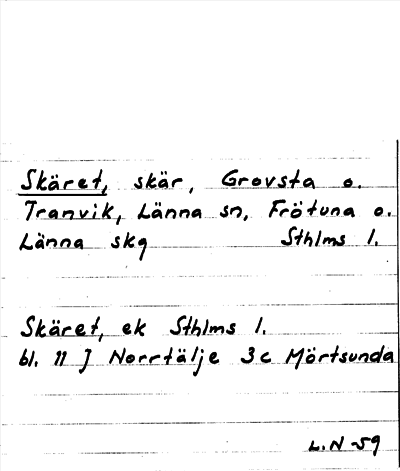 Skäret, skär, Grovsta o.
Tranvik, Länna sn, Frötuna o.
Länna skg Sthlms l.
Skäret, ek Sthlms l.
bl. 11 J Norrtälje 3c Mörtsunda
L.N -59